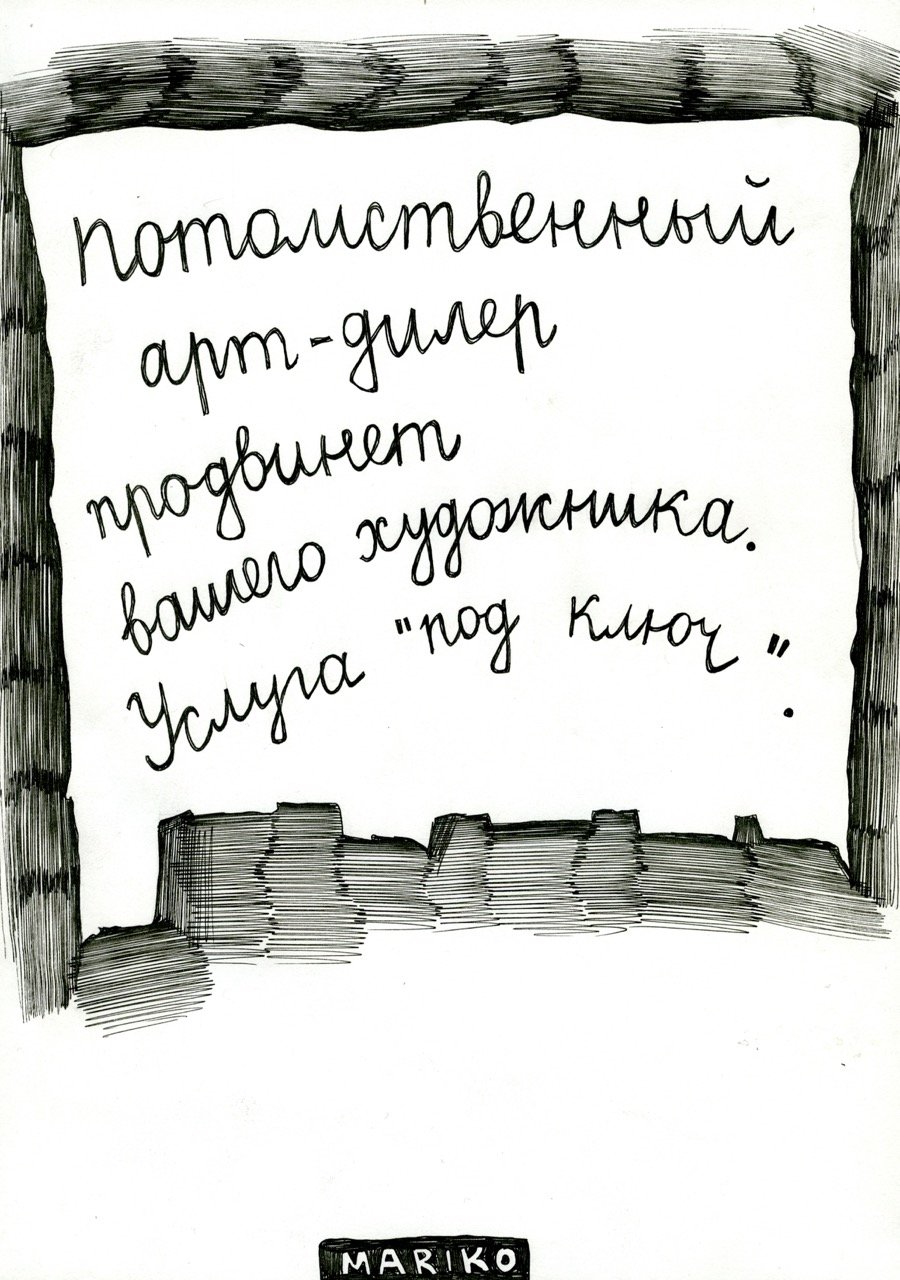 Потомственный
арт-дилер
продвинет
вашего художника.
Услуга "под ключ".
MARIKO